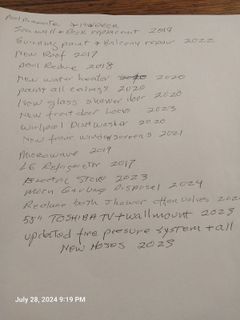 Seawall + Dock replacement 2019
Burning paint + Balcony repair 2022
New Roof 2017
Pool Redone 2018
New water heater 2020
paint all ceilings 2020
New glass shower door 2020
New front door Locks 2023
Whirlpool Dishwasher 2020
New front window screens 2021
Microwave 2019
LG Refrigerator 2017
Electric Stove 2023
Moen Garbage Disposel 2024
Replace both shower
55" TOSHIBA TV + wall mount 2023
updated fire pressure system + all
New Hoses 2023
July 28, 2024 9:19 PM